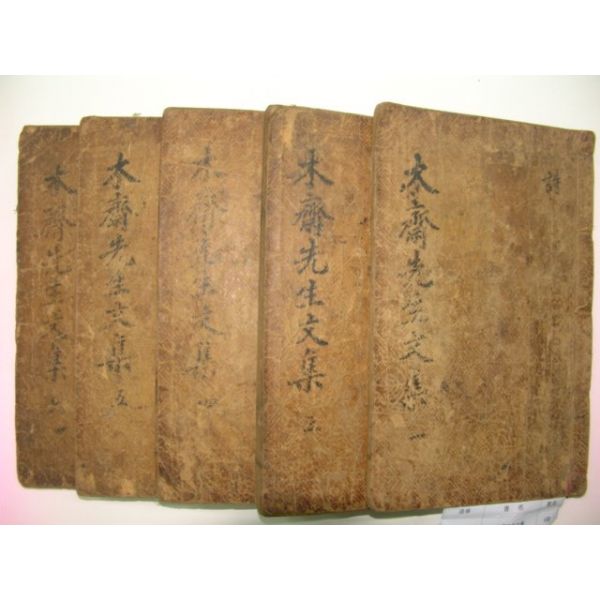 詩
木齋先生文集 一
木齋先生文集 三
木齋先生文集 四
木齋先生文集 五
木齋先生文集